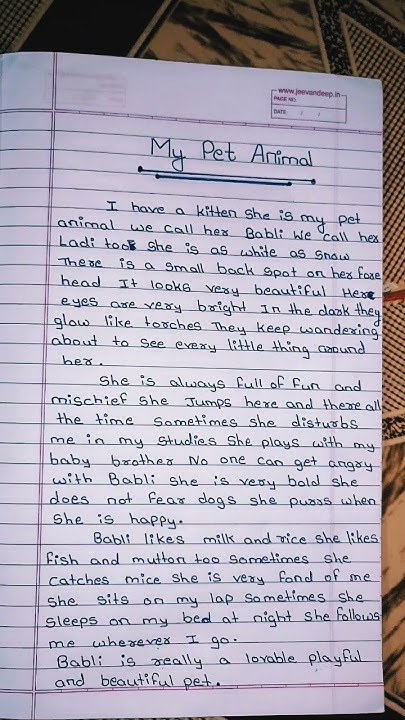 www.jeevandeep.in
PAGE NO.
DATE: / /
My Pet Animal
I have a kitten she is my pet
animal we call her Babli We call her
Ladi too she is as white as snow
There is a small back spot on her fore
head It looks very beautiful Her
eyes are very bright In the dark they
glow like torches They keep wandering
about to see every little thing around
her.
She is always full of fun and
mischief she Jumps here and there all
the time sometimes she disturbs
me in my studies she plays with my
baby brother No one can get angry
with Babli she is very bold she
does not fear dogs she purrs when
she is happy.
Babli likes milk and rice she likes
fish and mutton too sometimes she
catches mice she is very fond of me
she sits on my lap sometimes she
sleeps on my bed at night she follows
me wherever I go.
Babli is really a lovable playful
and beautiful pet.